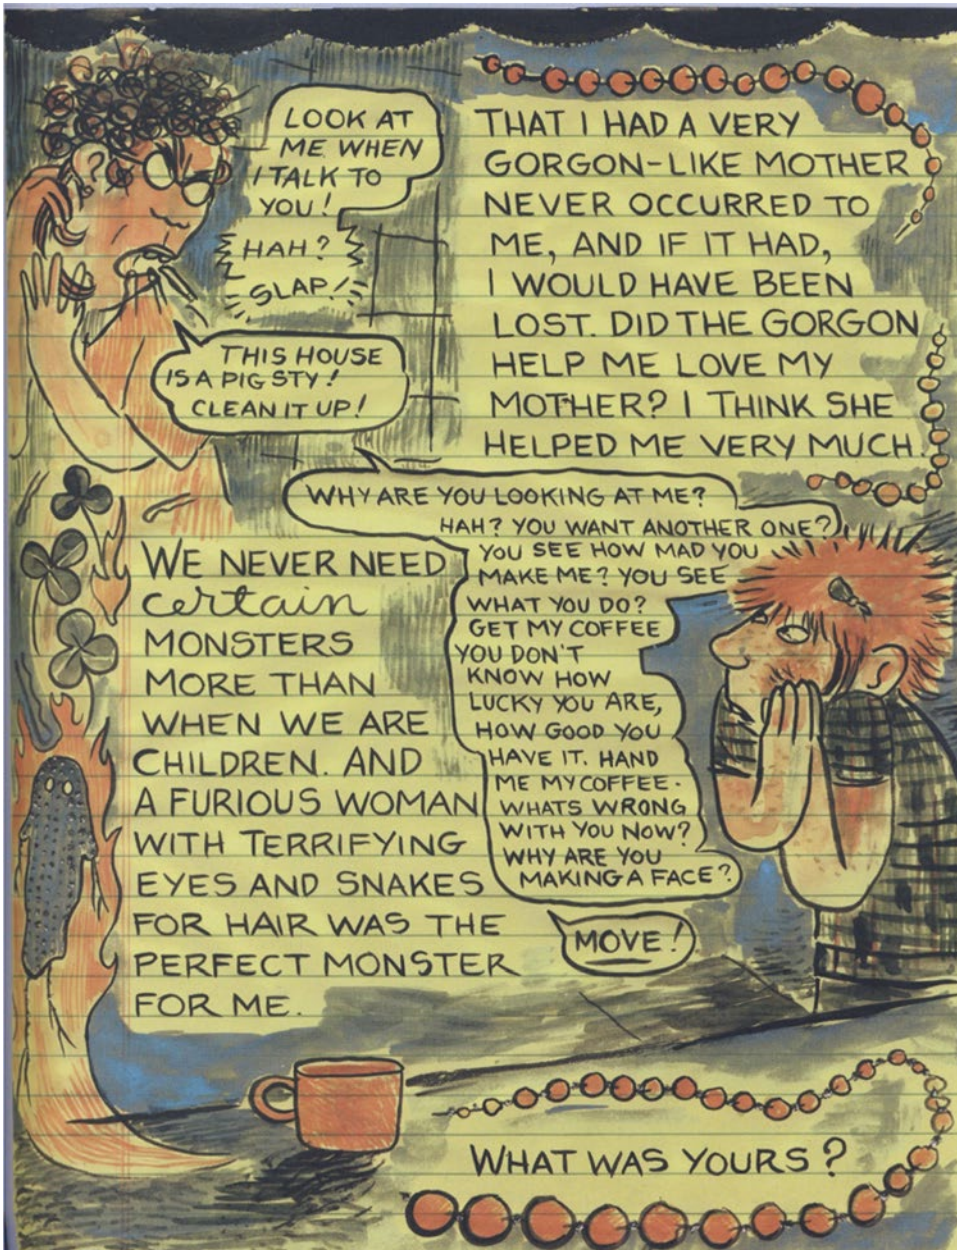 LOOK AT
ME WHEN
I TALK TO
YOU!
HAH?
SLAP!
THIS HOUSE
IS A PIG STY!
CLEAN IT UP!
THAT I HAD A VERY
GORGON-LIKE MOTHER
NEVER OCCURRED TO
ME, AND IF IT HAD,
I WOULD HAVE BEEN
LOST. DID THE GORGON
HELP ME LOVE MY
MOTHER? I THINK SHE
HELPED ME VERY MUCH.
WHY ARE YOU LOOKING AT ME?
HAH? YOU WANT ANOTHER ONE?
YOU SEE HOW MAD YOU
MAKE ME? YOU SEE
WHAT YOU DO?
GET MY COFFEE
YOU DON'T
KNOW HOW
LUCKY YOU ARE,
HOW GOOD YOU
HAVE IT. HAND
ME MY COFFEE.
WHATS WRONG
WITH YOU NOW?
WHY ARE YOU
MAKING A FACE?
MOVE!
WE NEVER NEED
certain
MONSTERS
MORE THAN
WHEN WE ARE
CHILDREN. AND
A FURIOUS WOMAN
WITH TERRIFYING
EYES AND SNAKES
FOR HAIR WAS THE
PERFECT MONSTER
FOR ME.
WHAT WAS YOURS?